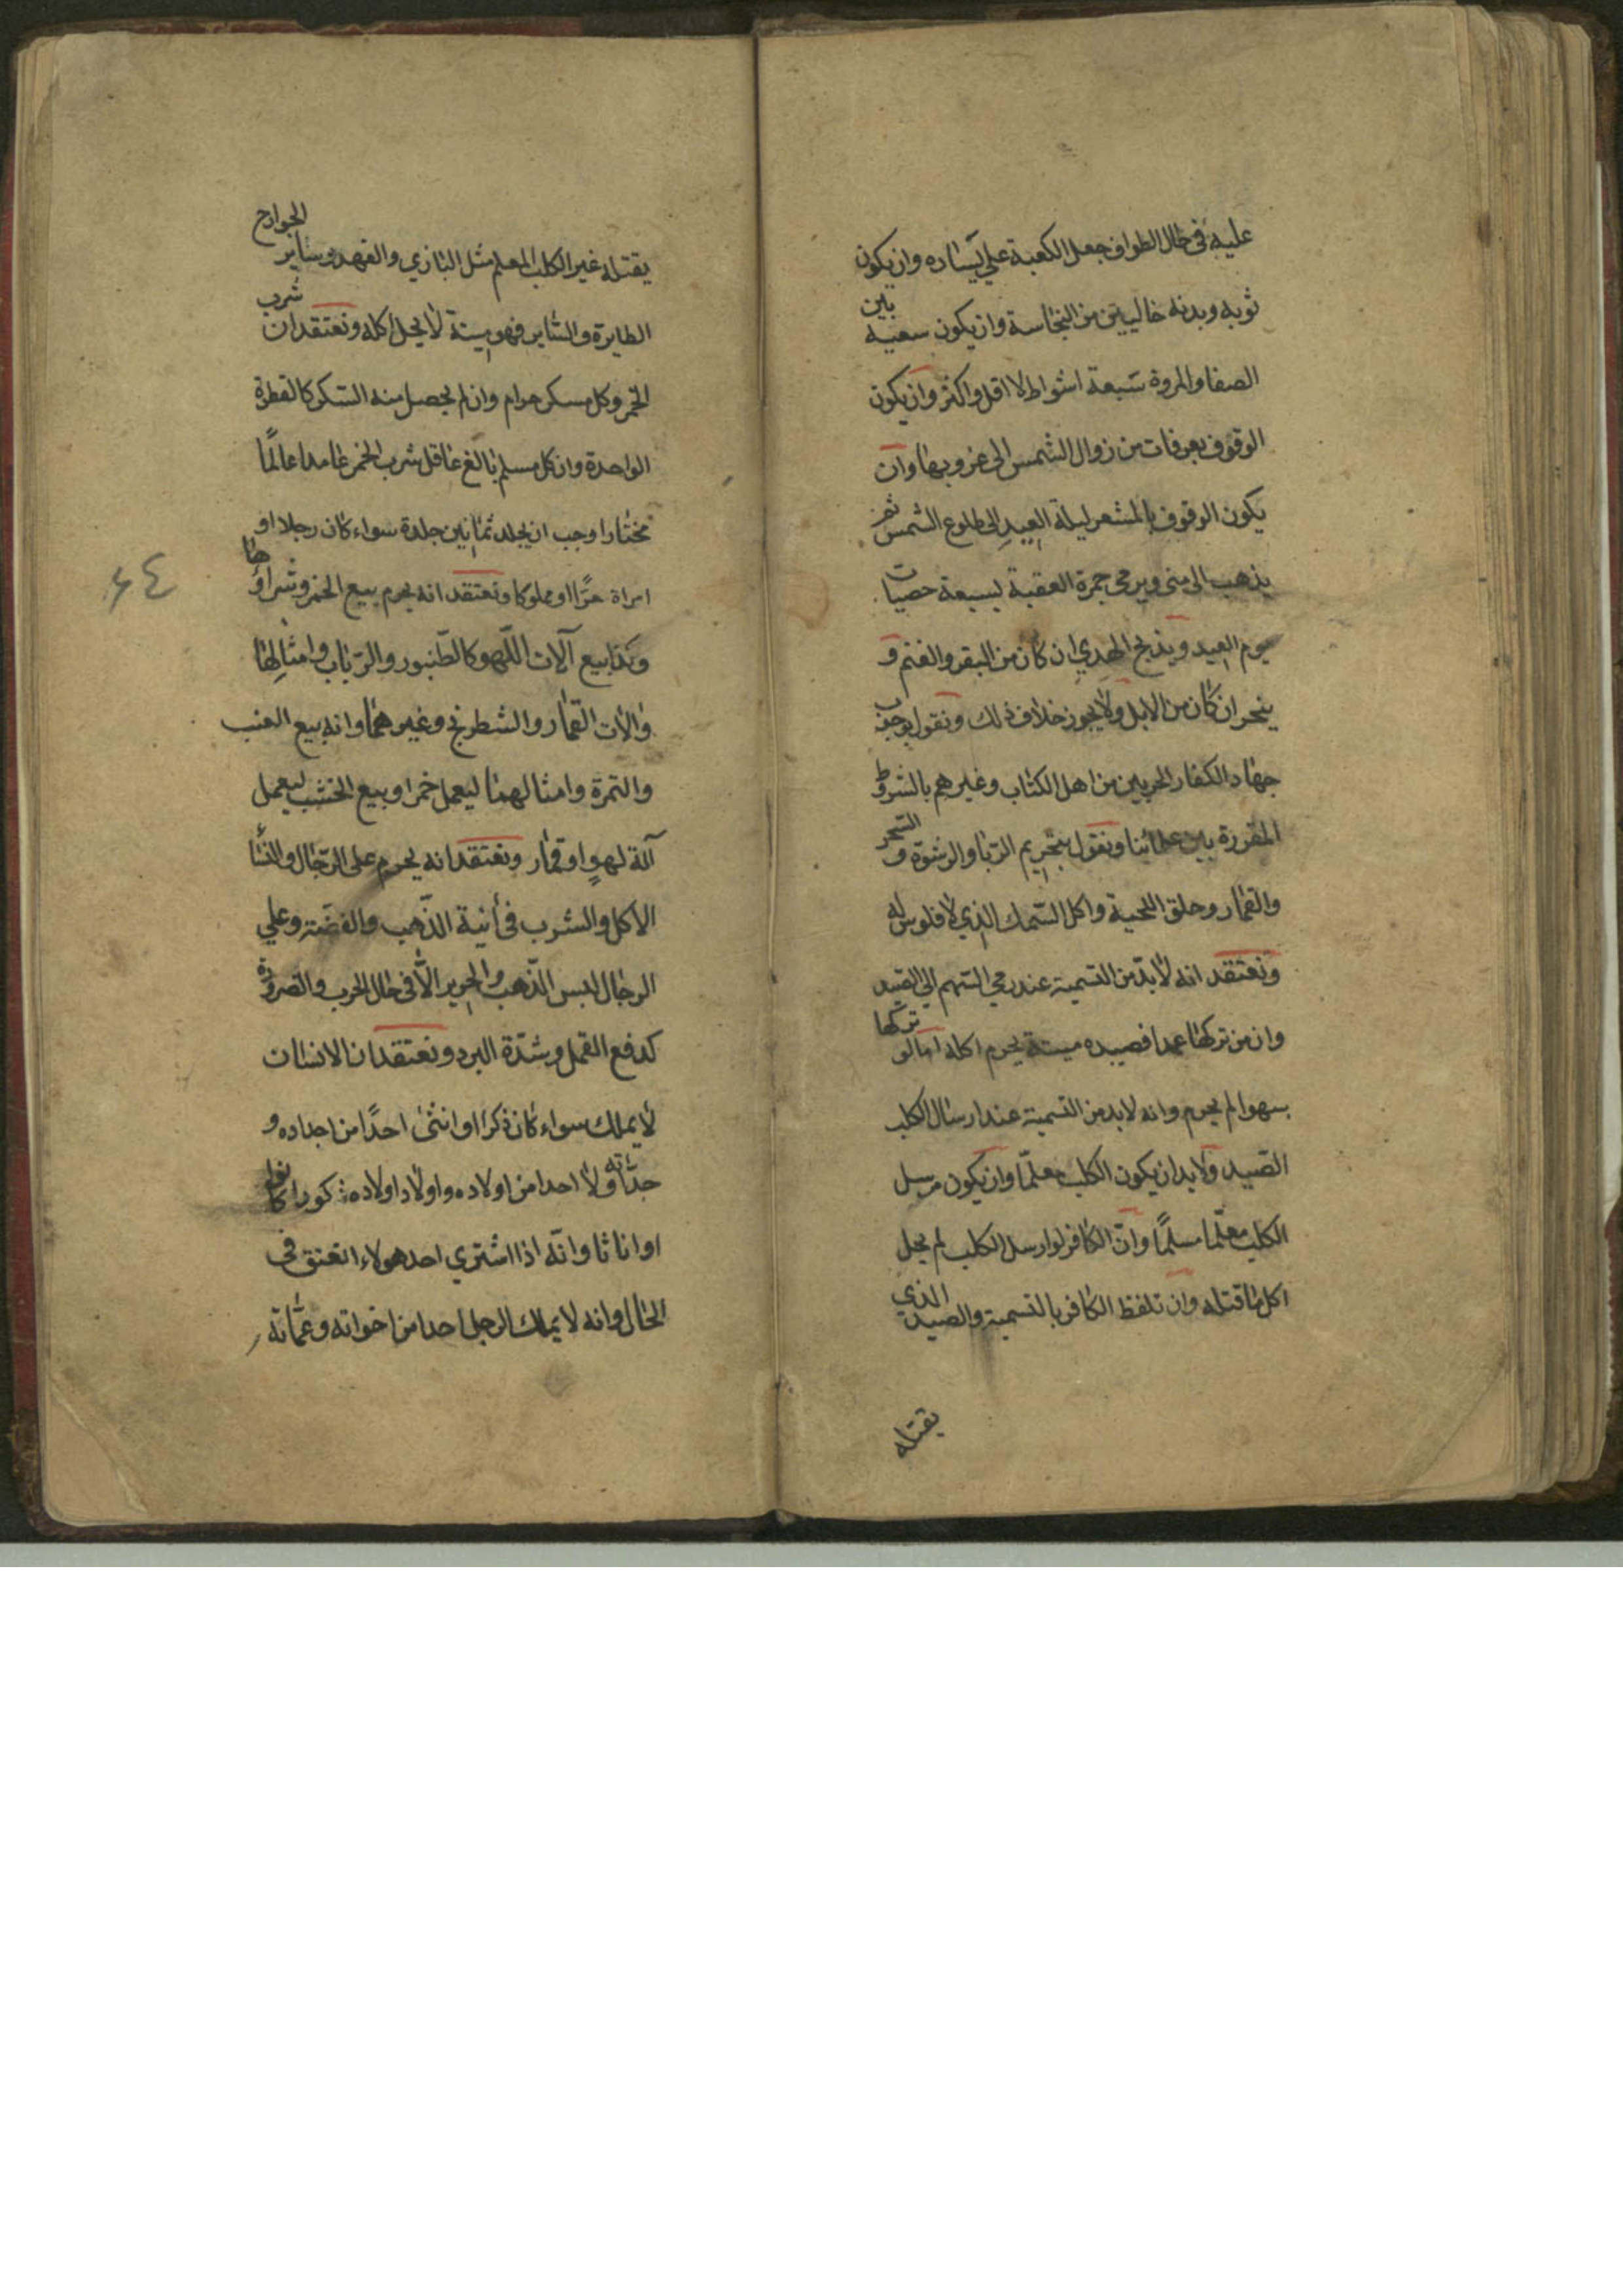 عليه في حال الطواف جعل الكعبة علي يساره وان يكون
ثوبه وبدنه خاليين من النجاسة وان يكون سعيه بين
الصفا والمروة سبعة اشواط لا اقل واكثر وان يكون
الوقوف بعرفات من زوال الشمس الى غروبها وان
يكون الوقوف بالمشعر ليلة العيد الى طلوع الشمس ثم
يذهب الى منى ويرمي جمرة العقبة بسبعة حصيات
يوم العيد ويذبح الهدي ان كان من البقر والغنم و
ينحر ان كان من الابل ولا يجوز خلاف ذلك ونقول بوجوب
جهاد الكفار الحربيين من اهل الكتاب وغيرهم بالشروط
المقررة بين علمائنا ونقول بتحريم الربا والرشوة و السحر
والقمار وحلق اللحية واكل السمك الذي لا فلوس له
ونعتقد انه لا بد من التسمية عند رمي السهم الي الصيد
وان من تركها عمدا فصيده ميتة يحرم اكله اما لو تركها
سهوا لم يحرم وانه لا بد من التسمية عند ارسال الكلب
الصيد ولا بد ان يكون الكلب معلما وان يكون مرسل
الكلب معلما مسلما وان الكافر لو ارسل الكلب لم يحل
اكل ما قتله وان تلفظ الكافر بالتسمية والصيد الذي
يقتله
يقتله غير الكلب المعلم مثل البازي والفهد وساير الجوارح
الطايرة والساير فهو ميتة لا يحل اكله ونعتقد ان شرب
الخمر وكل مسكر حرام وان لم يحصل منه السكر كالقطرة
الواحدة وان كل مسلم بالغ عاقل شرب الخمر عامدا عالما
مختارا وجب ان يجلد ثمانين جلدة سواء كان رجلا او
امراة حرا او مملوكا ونعتقد انه يحرم بيع الخمر وشراؤها
وكذا بيع آلات اللهو كالطنبور والرباب وامثالها
والات القمار والشطرنج وغيرهما وانه بيع العنب
والتمرة وامثالهما ليعمل خمرا وبيع الخشب ليعمل
آلة لهو او قمار ونعتقد انه يحرم على الرجال والنسا
الاكل والشرب في أنية الذهب والفضة وعلي
الرجال لبس الذهب والحرير الا في حال الحرب والضرورة
كدفع القمل وشدة البرد ونعتقد ان الانسان
لا يملك سواء كان ذكرا او انثى احدا من اجداده و
جداته ولا احدا من اولاده واولاد اولاده ذكورا كانوا
او اناثا وانه اذا اشتري احد هولاء انعتق في
الحال وانه لا يملك الرجل احدا من اخواته وعماته
٦٤